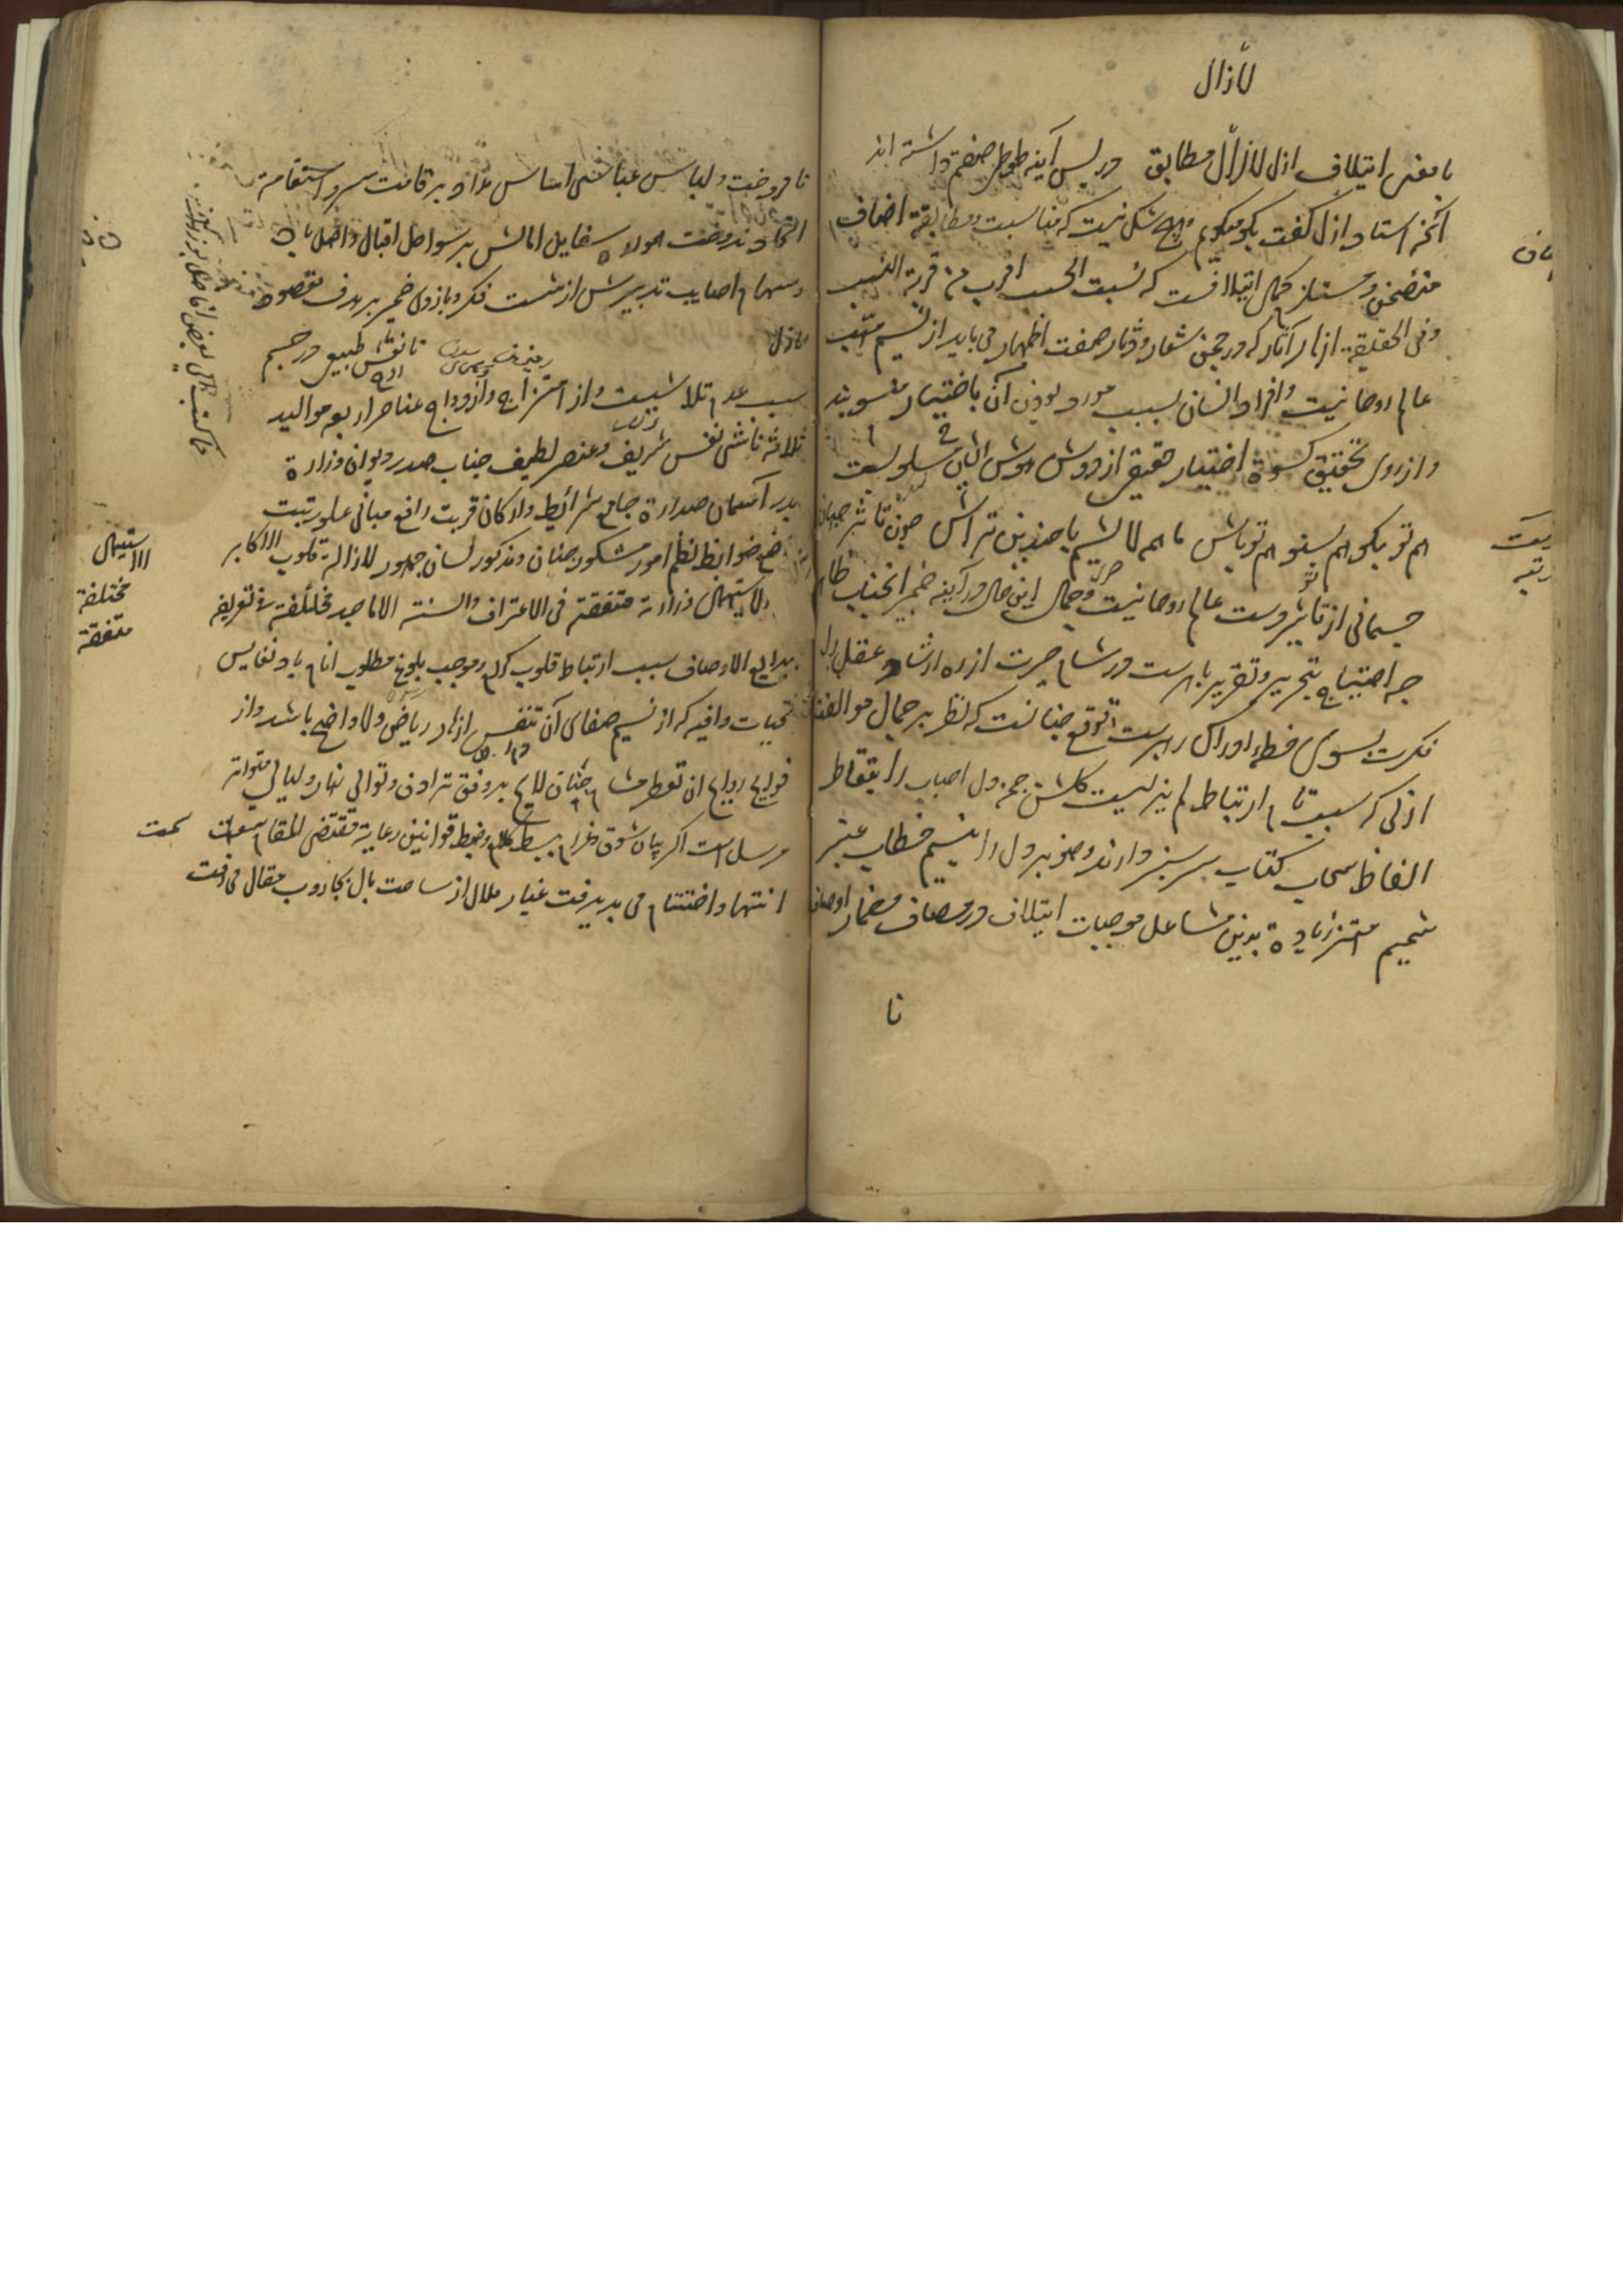 لازال
با معنی ایتلاف ازل لازال مطابق در پس آینه طوطی صفتم داشته اند
آنچه استاد ازل گفت بگو میگویم هیچ شکی نیست که مناسبت و مطابقة اضاف
متضمن و مستلزم کمال ایتلافست که نسبت الحسب اقرب من قربة النسب
وفی الحقیقة ازهار آثار که در چمن شعار و دثار صفت اظهار می یابد از نسیم
عالم روحانیت و افراد انسان بسبب مورد بودن آن باختیار منسوبند
و از روی تحقیق کسوة اختیار حقیقی از دوش هوش ایشان مسلوبست
هم تو بگو هم بشنو هم تو باش ما همه لاشیم با چندین تراش چون تاثیر جهان
جسمانی از تاثیر وست عالم روحانیت و جمال این حال در آینه ضمیر انجناب ظاهر
چه احتیاج بتحریر و تقریر باهرست و رشاء حیرت از ره ارشاد عقل را
فکرت بسوی خطه ادراک راهبرست توقع چنانست که نظر بر جمال موالفتا
ازلی که سبب تام ارتباط لم یزلیست گلشن چمن دل احباب را بتقاطر
الفاظ سحاب کتاب سرسبز دارند و صنوبر دل را بنسیم خطاب عنبر
شمیم مهتز زیاده بدین مشاعل موجبات ایتلاف در مصاف مضمار اوصاف
نا
نافروخت و لباس عباسی اساس وداد بر قامت سرو استقامة
اتحاد ندوخت همواره سفاین امالش بر سواحل اقبال واصل باد
و سهام اصابت تدبیرش از شست فکر و بازوی ضمیر بر هدف مقصود
نازل تا نفس طبیعی در جسم
سبب عدم تلاشیست و از امتزاج و ازدواج عناصر اربعه موالید
ثلاثه ناشی نفس شریف و عنصر لطیف جناب صدر دیوان وزارة
بدر آسمان صدارة جامع شرائط و ارکان قربت رافع مبانی علو رتبت
ضوابط نظم امور مشکور جنان و مذکور لسان جمهور لازالت قلوب الاکابر
لاستیهال وزارته متفقة فی الاعتراف والسنة الاماجد مختلفة فی تعریفه
بدایع الاوصاف سبب ارتباط قلوب کرام و موجب بلوغ مطلوب انام باد نفایس
تحیات وافیه که از نسیم صفای آن تنفس ازهار ریاض ولا واضح باشد و از
فوایح روایح ان تعطر مشام جنان لایح بر وفق ترادف و توالی نهار و لیالی متواتر
مرسل است اگر بیان شوق و غرام ببسط کلام و ضبط قوانین رعایة مقتضی المقام سمت
انتها و اختتام می پذیرفت غبار ملال از ساحت بال بجاروب مقال می رفت
الاستیهال
مختلفة
متفقة